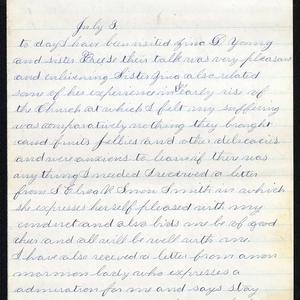 July 3,
to day I have been visited Zina D. Young
and sister Freese their talk was very pleasan
and enlivening Sister Zina also related
some of her experience in the early rise of
the Church at which I felt my suffering
was comparatively nothing they brought
cand fruits Jellies and other delicacies
and were anxious to learn if there was
any thing I needed I received a letter
from S Eliza R Snow Smith in which
she expresses herself pleased with my
conduct and also bids me be of good
cheer and all will be well with me.
I have also received a letter from a non
mormon lady who expresses a
admiration for me and says stay